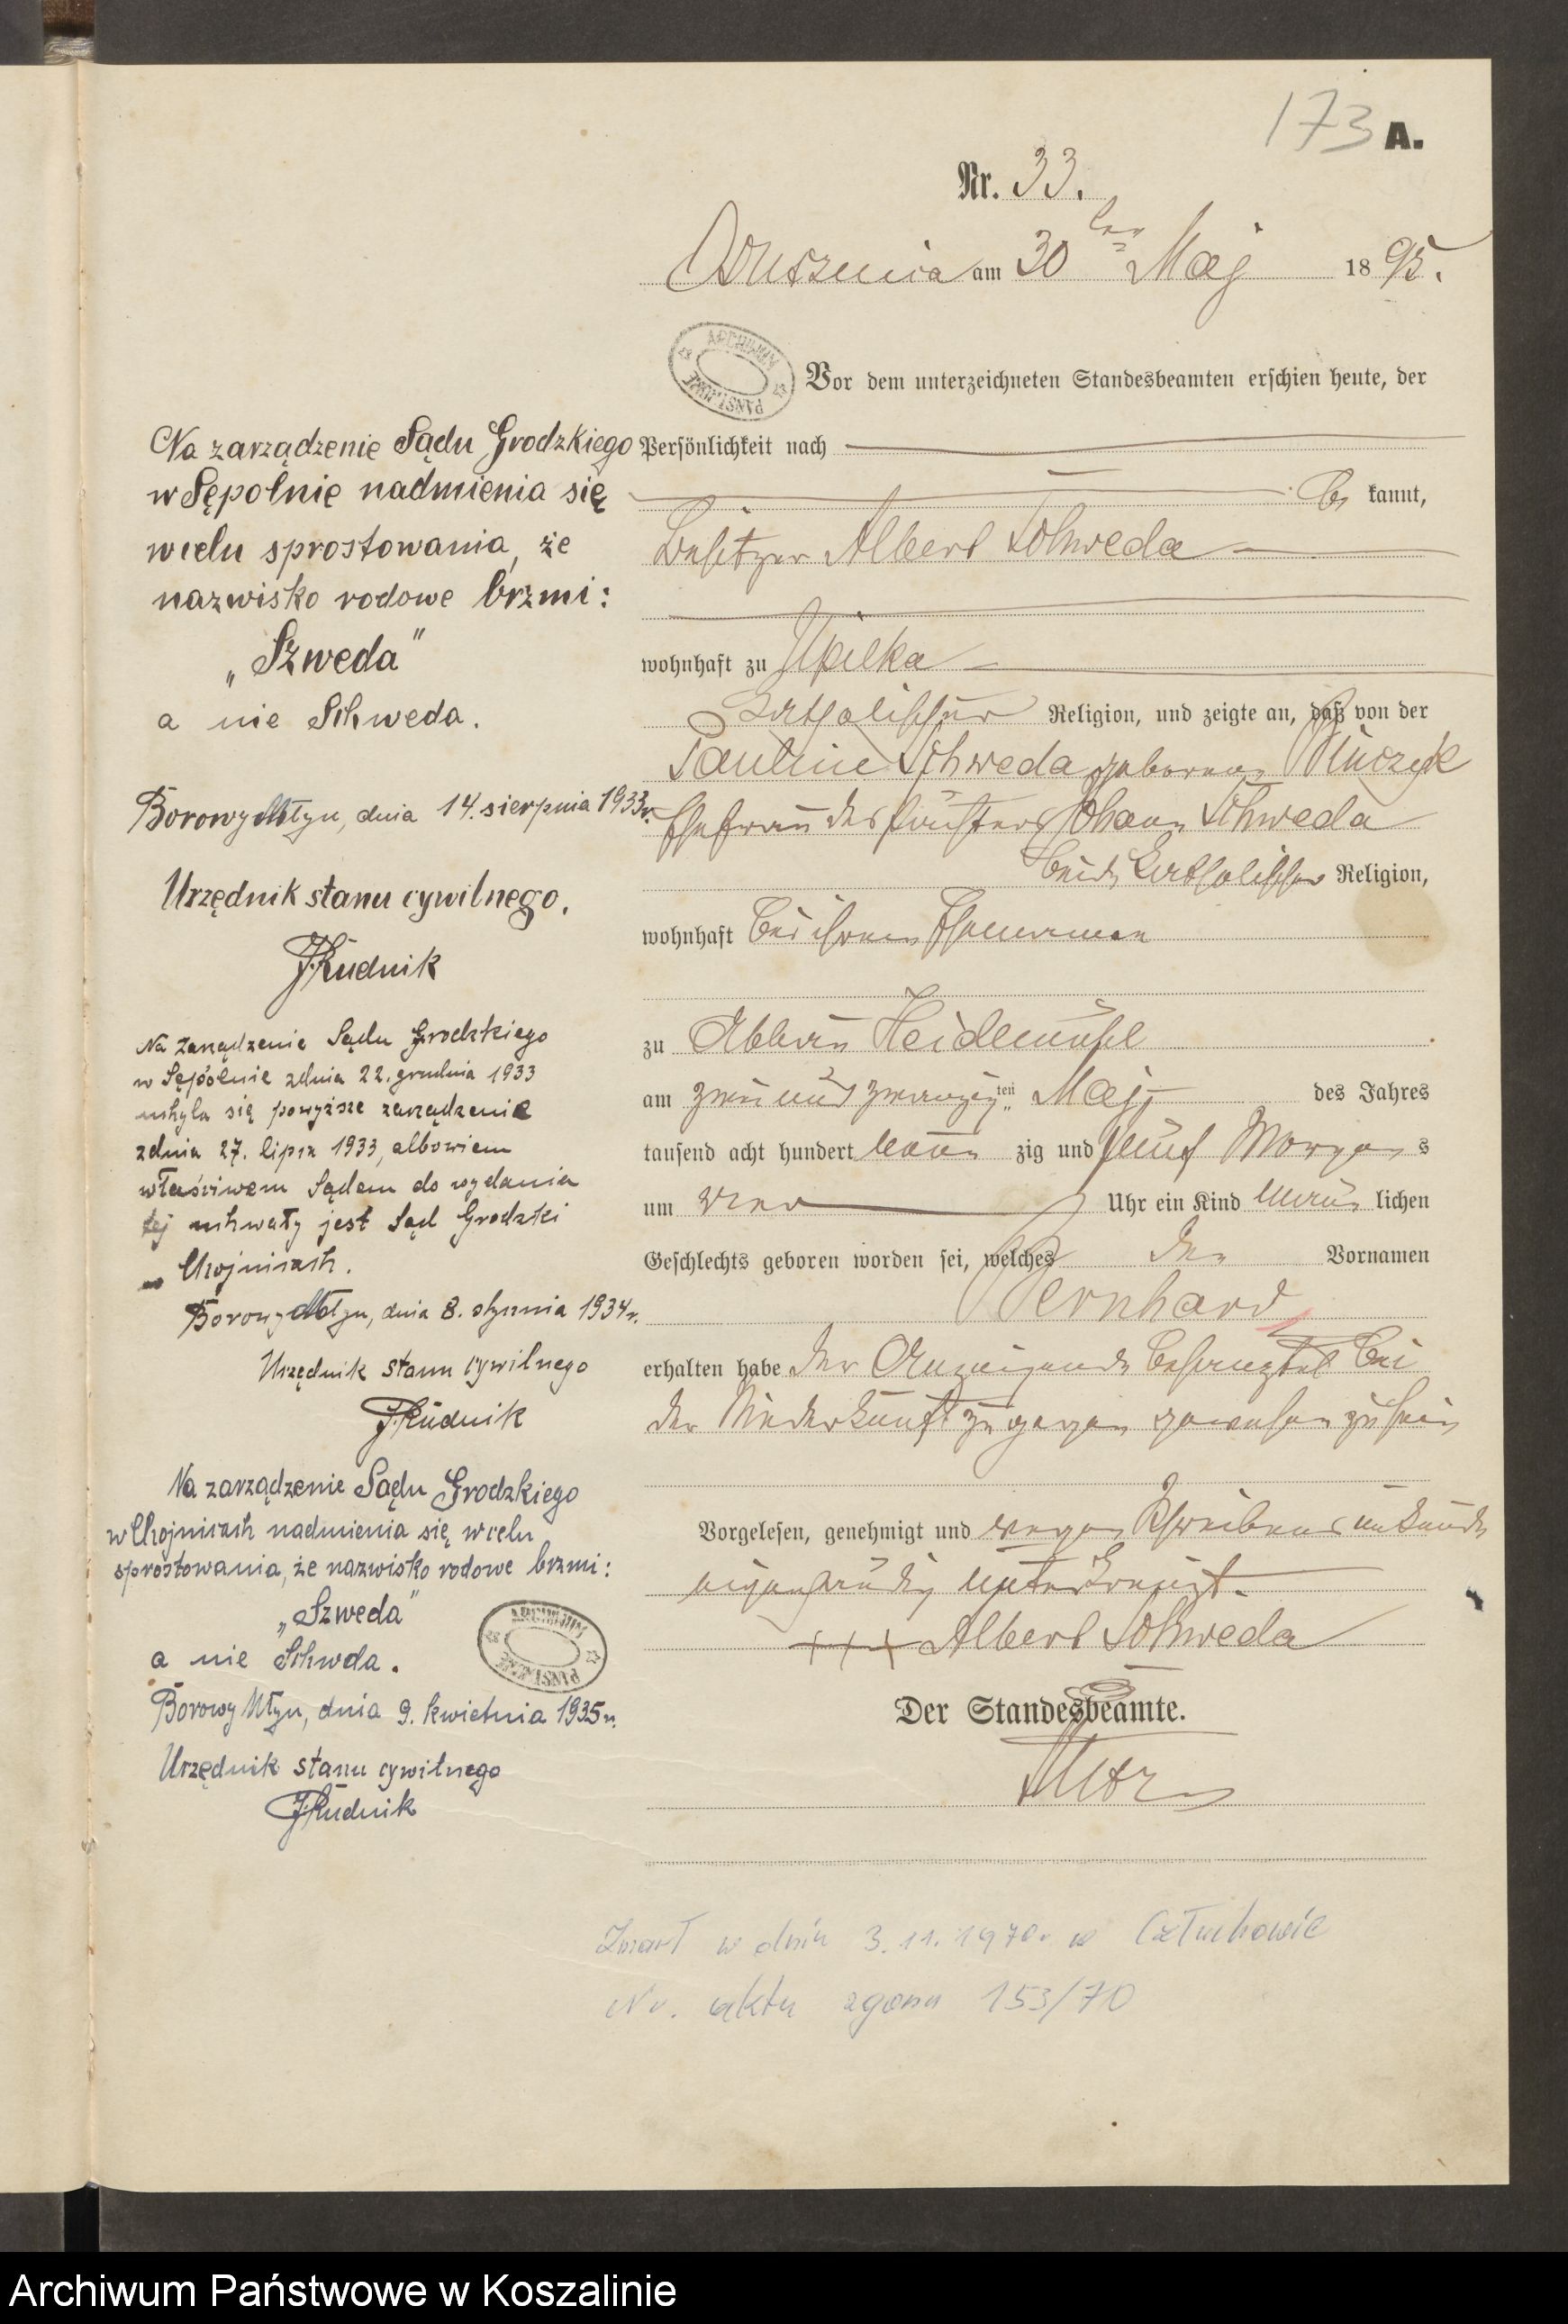 173 A.
Nr. 33.
am 30 ten Maj 1895.
ARCHIWUM PAŃSTWOWE
Vor dem unterzeichneten Standesbeamten erschien heute, der
Persönlichkeit nach
be kannt,
Besitzer Albert Schweda
wohnhaft zu Upilka
katholischer Religion, und zeigte an, daß von der
Pauline Schweda geborene
Ehefrau des Johann Schweda
beide katholischer Religion,
wohnhaft bei ihrem Ehemanne
zu Abbau Heidemühl
am zwei und zwanzig ten Maj des Jahres
tausend acht hundert neun zig und fünf Morgens
um vier Uhr ein Kind männ lichen
Geschlechts geboren worden sei, welches den Vornamen
Bernhard
erhalten habe der Anzeigende behauptet bei
der Niederkunft zugegen gewesen zu sein
Vorgelesen, genehmigt und wegen Schreibensunkunde
eigenhändig unterkreuzt.
+++ Albert Schweda
Der Standesbeamte.
Na zarządzenie Sądu Grodzkiego
w Sępolnie nadmienia się
wcelu sprostowania, że
nazwisko rodowe brzmi:
„Szweda"
a nie Schweda.
Borowy Młyn, dnia 14. sierpnia 1933r.
Urzędnik stanu cywilnego.
J. Rudnik
Na zarządzenie Sądu Grodzkiego
w Sępolnie zdnia 22. grudnia 1933
uchyla się powyższe zarządzenie
zdnia 27. lipca 1933, albowiem
właściwem Sądem do wydania
tej uchwały jest Sąd Grodzki
w Chojnicach.
Borowy Młyn, dnia 8. stycznia 1934r.
Urzędnik stanu cywilnego
J. Rudnik
Na zarządzenie Sądu Grodzkiego
w Chojnicach nadmienia się wcelu
sprostowania, że nazwisko rodowe brzmi:
„Szweda"
a nie Schwda.
ARCHIWUM PAŃSTWOWE
Borowy Młyn, dnia 9. kwietnia 1935r.
Urzędnik stanu cywilnego
J. Rudnik
Zmarł w dniu 3.11.1970r w Człuchowie
Nr. aktu zgonu 153/70
Archiwum Państwowe w Koszalinie